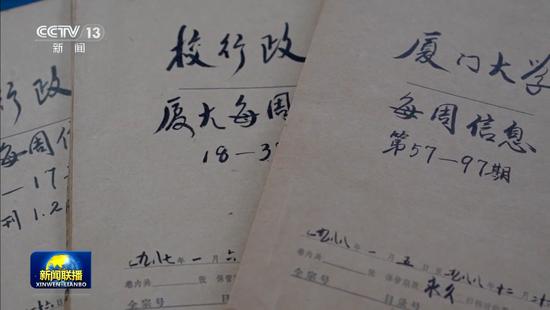 CCTV 13
新闻
行政
每周信
-17
刊 1.2
校行政
厦大每周
18-3
一九八七年一月六
卷内共 张 保管
全宗号
厦门大学
每周信息
第57-97期
一九八八年一月五日至一九八八年十二月二十
卷内共 张 保管期限 永久
全宗号 目录号
新闻联播
XINWEN LIANBO